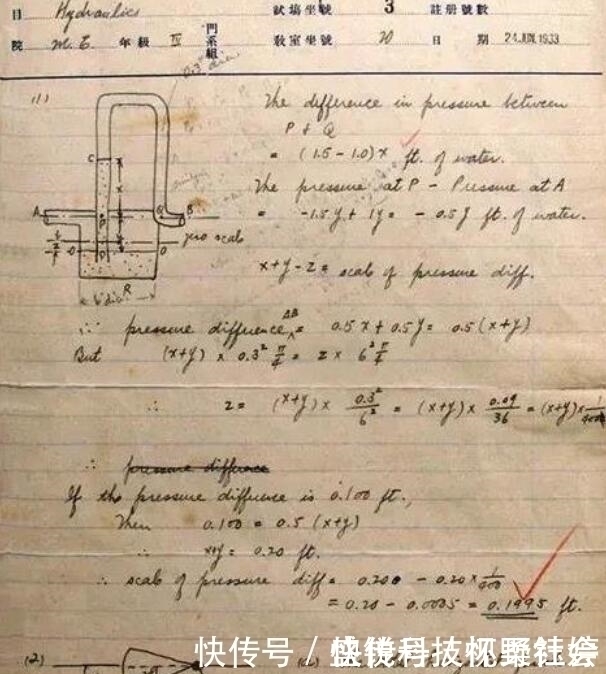 目 Hydraulics 試場坐號 3 註冊號數
院 M.E 年級 IV 門系組 教室坐號 20 日期 24 JUN 1933
(1) 0.3" dia
The difference in pressure between
P & Q
= (1.5 - 1.0) x ft. of water.
The pressure at P - Pressure at A
= -1.5y + 1y = -0.5y ft. of water.
C
x
A P Q B
y
zero scale
z
O O
R
6" dia.
x+y-z = scale of pressure diff.
∴ pressure difference AB = 0.5x + 0.5y = 0.5 (x+y)
But (x+y) × 0.3² π/4 = z × 6² π/4
∴ z = (x+y) × 0.3²/6² = (x+y) × 0.09/36 = (x+y) × 1/400
∴ pressure difference
If the pressure difference is 0.100 ft.,
Then 0.100 = 0.5 (x+y)
∴ x+y = 0.20 ft.
∴ scale of pressure diff = 0.200 - 0.20 × 1/400
= 0.20 - 0.0005 = 0.1995 ft.
(2)
快传号/